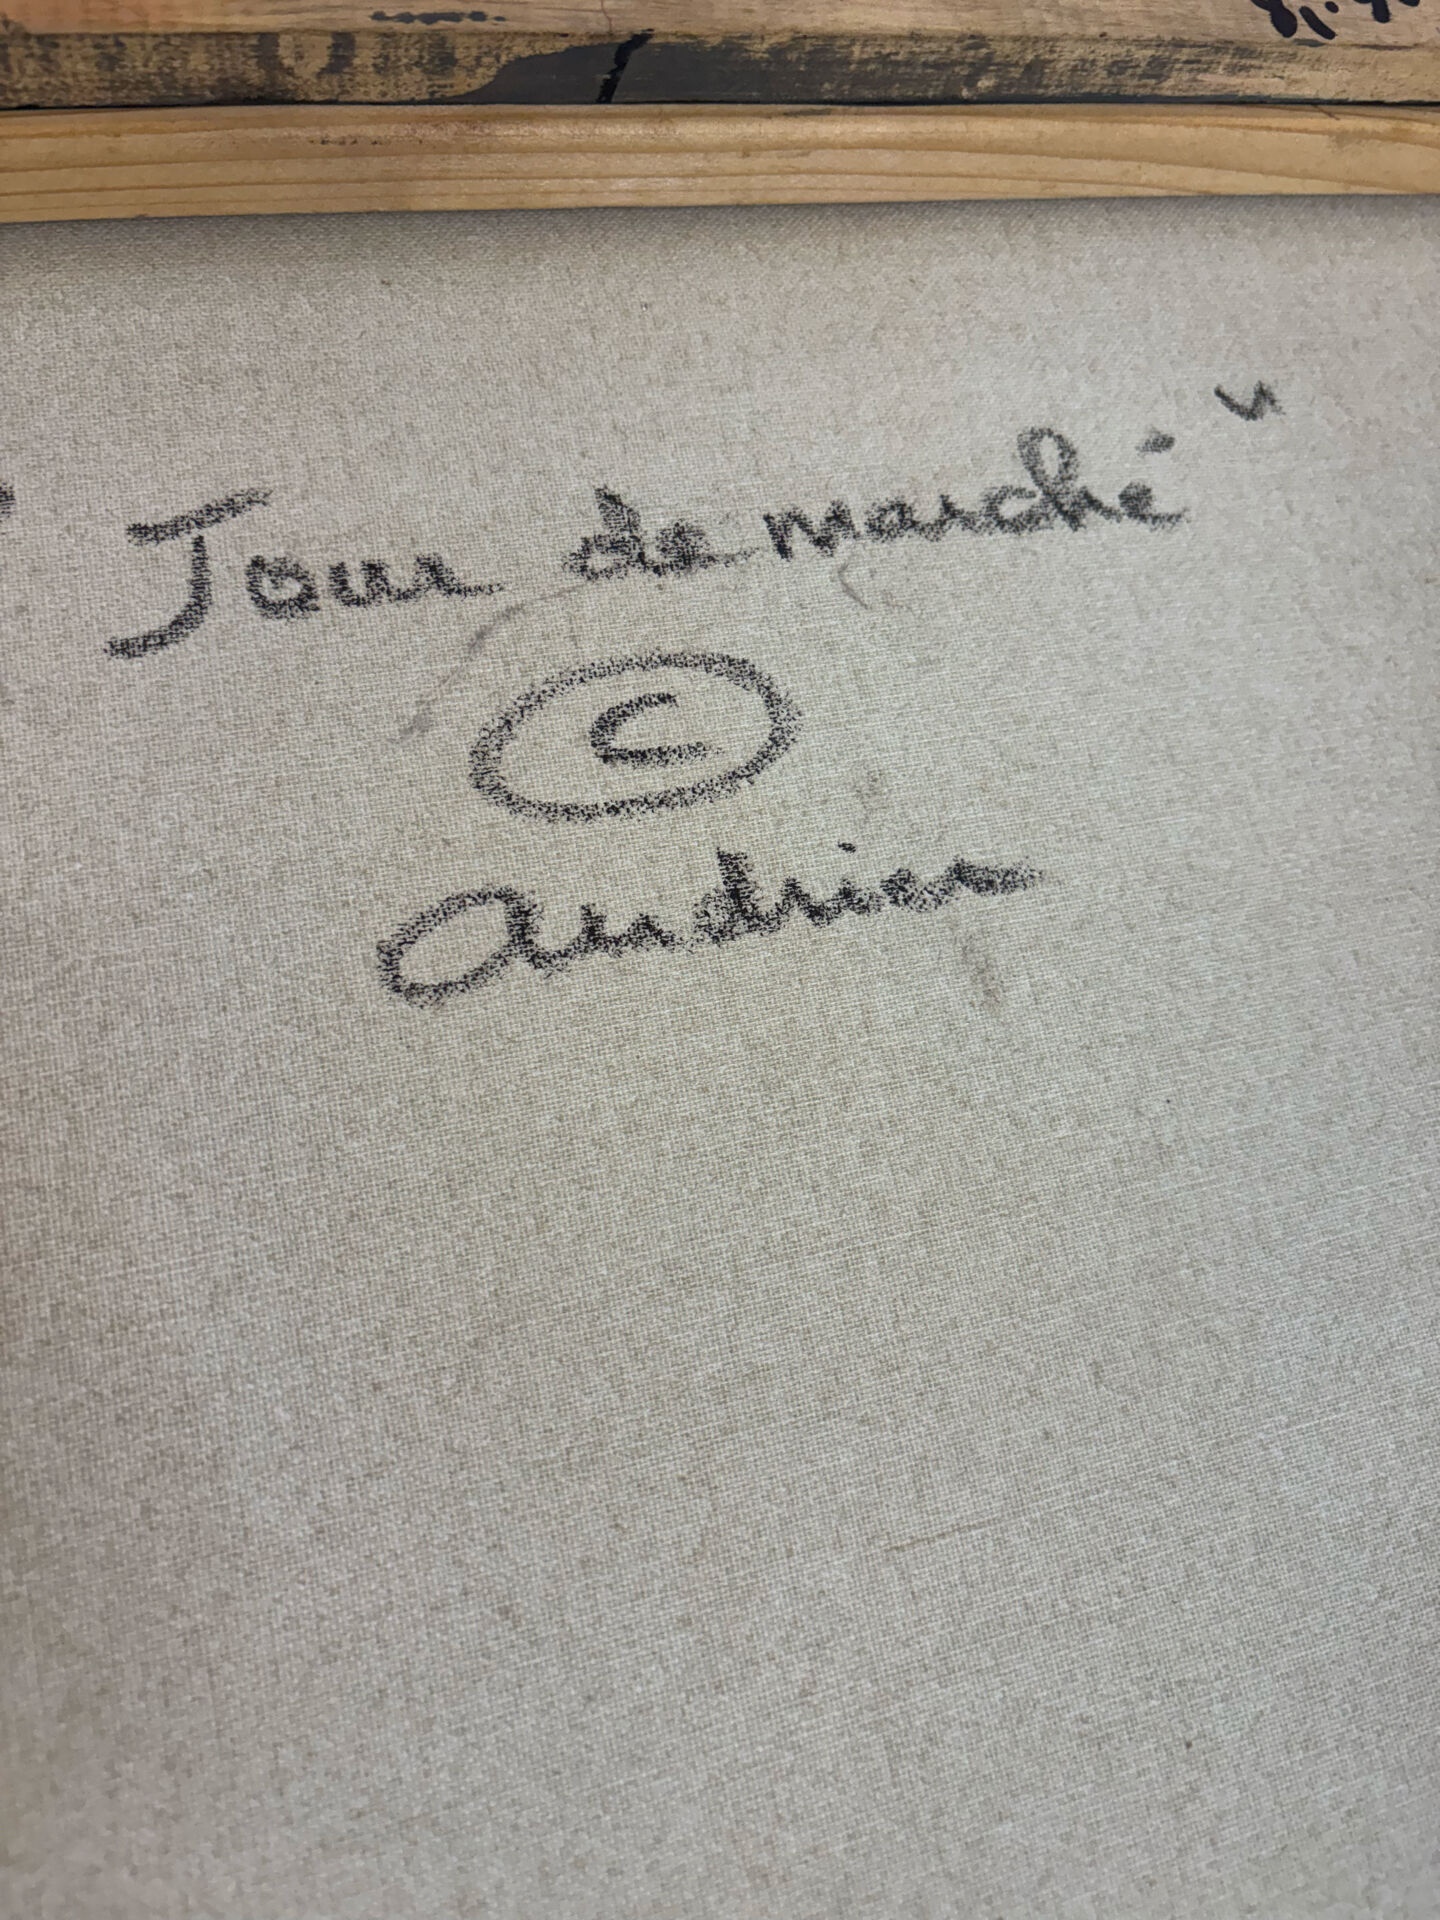 " Jour de marché "
©
Audrien